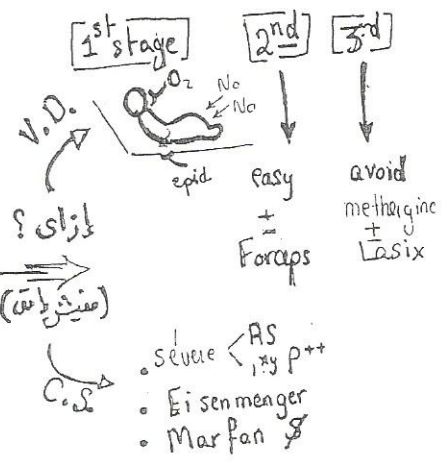 1st stage
2nd
3rd
V.D.
O2
No
No
epid
easy
±
Forceps
avoid
methergine
+
Lasix
إزاى ؟
C.S.
• Severe < AS
1ry P++
• Eisenmenger
• Marfan $